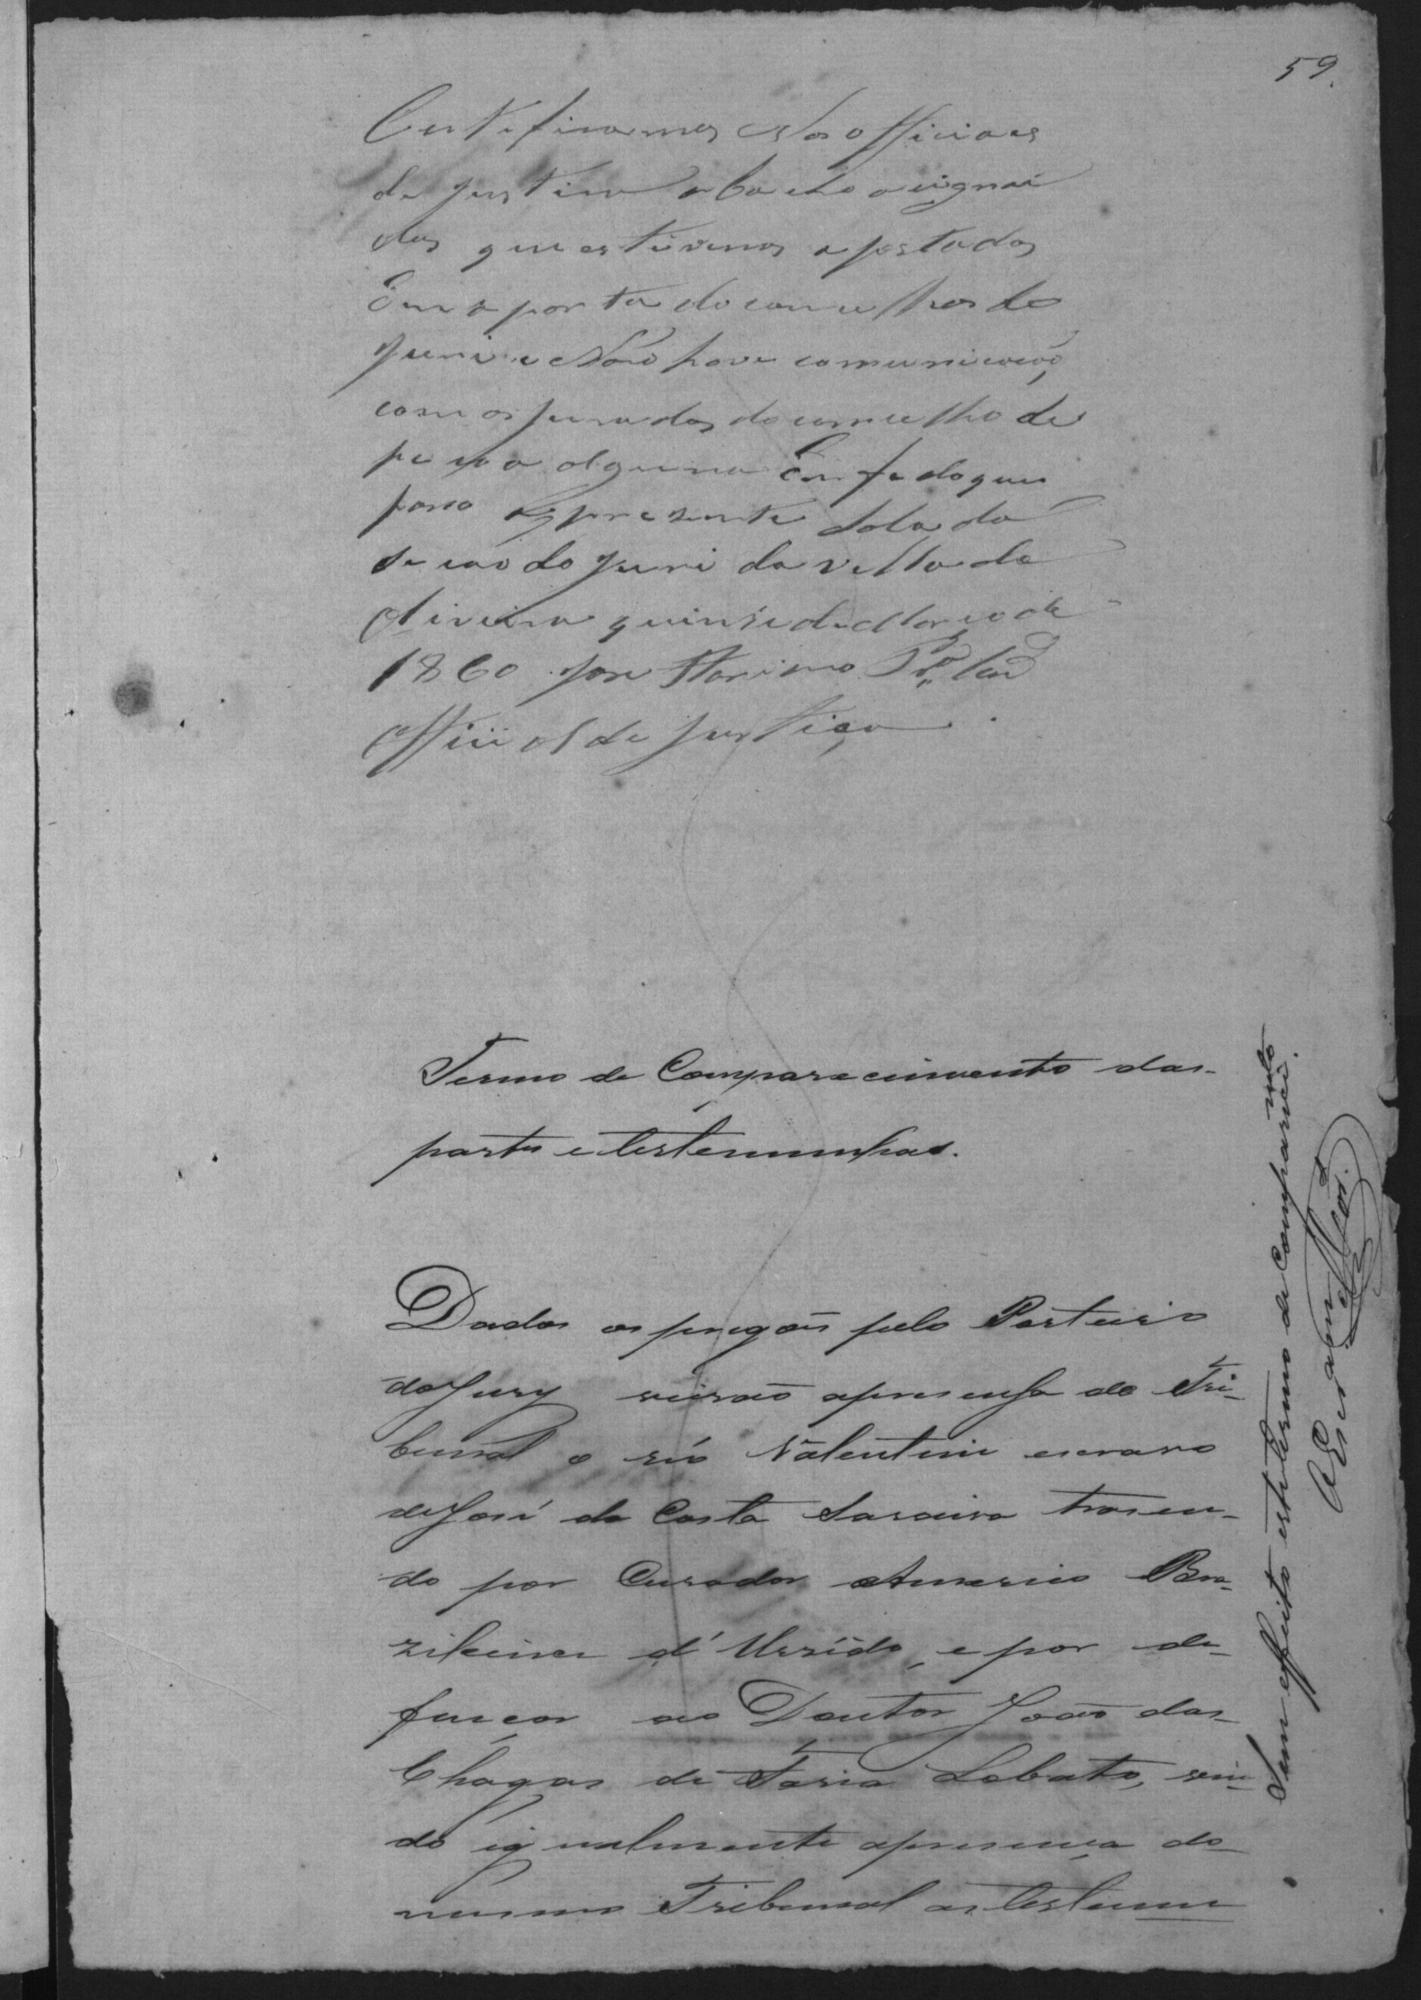 59.
Certificamos Nos officiaes
de justica abacho acignai
dos que estivemos apostados
Em a porta do concelho do
juri e Não hove comunicacão
com os jurados do concelho de
pecoa alguma Em fe do que
paso apresente Sala da
secão do juri da villa de
Oliveira quinse de Marco de
1860 Jose
Official de justiça
Termo de Comparecimento das
partes e testemunhas.
Dados os pregões pelo Porteiro
do Jury veirão apresensa do Tri-
bunal o réo Valentim escravo
de José da Costa Saraiva trasen-
do por Curador Americo Bra-
zileiro d' e por de-
fençor ao Doutor João das
Chagas de Faria Lobato, vin-
do igualmente apresença do
mesmo Tribunal as testemu
Sem effeito este termo de Comparecimto.
O Escram